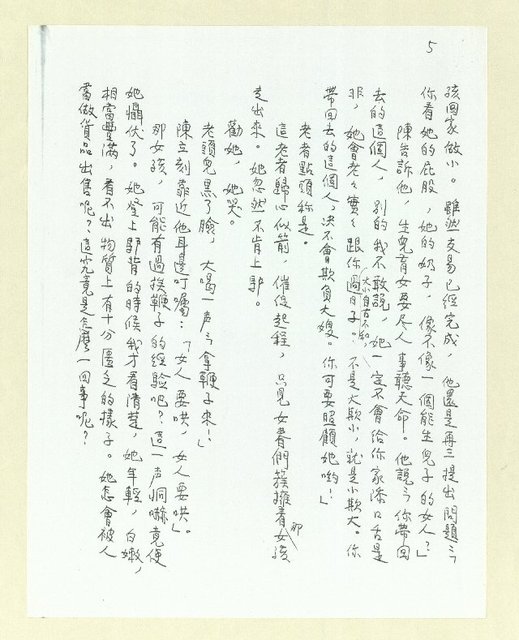 5
孩回家做小。雖然交易已經完成，他還是再三提出問題：「
你看她的屁股，她的奶子，像不像一個能生兒子的女人？」
陳告訴他，生兒育女要尽人事聽天命。他說：「你帶回
去的這個人，別的我不敢說，她一定不會給你家添口舌是
非，她會老老實實跟你過日子。不是大欺小，就是小欺大。你
帶回去的這個人，决不會欺負大嫂。你可要照顧她喲！」
老者點頭称是。
這老者歸心似箭，催促起程，只見女眷們簇擁着那女孩
走出來。她忽然不肯上驴。
勸她，她哭。
老頭兒黑了臉，大喝一声：「拿鞭子來！」
陳立刻靠近他耳邊叮囑：「女人要哄，女人要哄」。
那女孩，可能有過挨鞭子的經驗吧？這一声恫嚇竟使
她懾伏了。她登上驴背的時候我才看清楚，她年輕，白嫩，
相當豐滿，看不出物質上有十分匱乏的樣子。她怎會被人
當做貨品出售呢？這究竟是怎麼一回事呢？